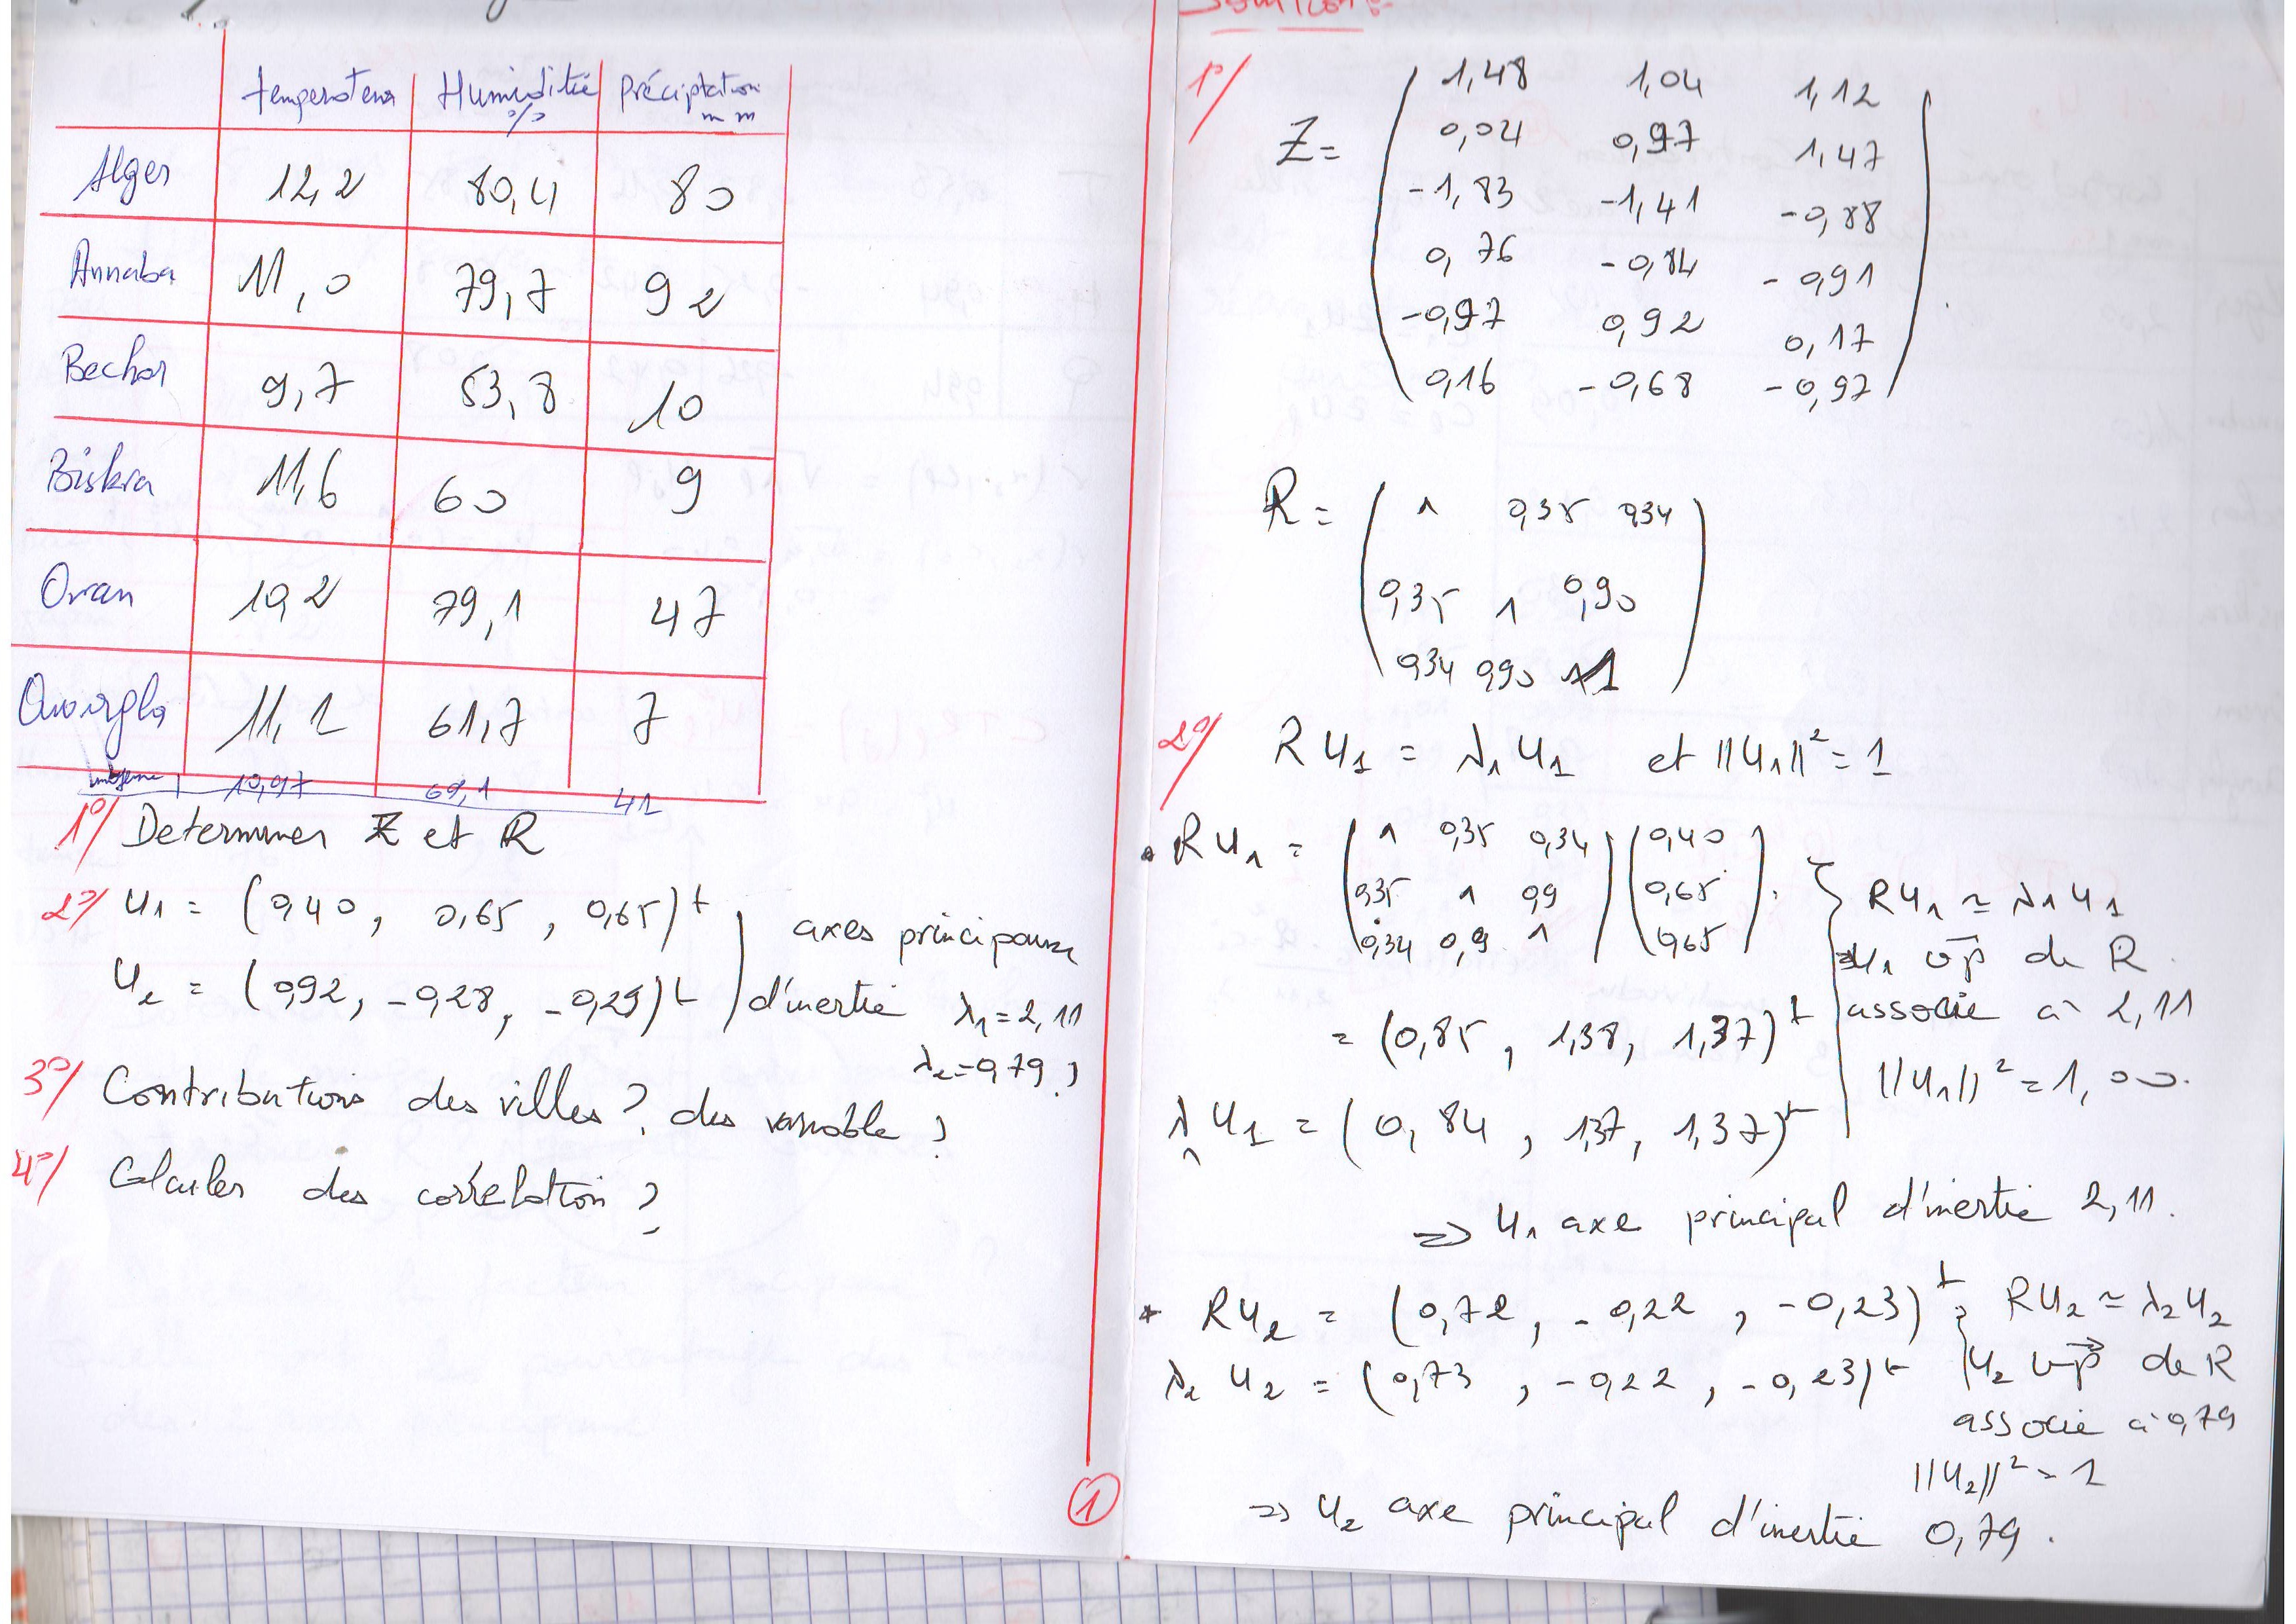 temperateur Humidité % Précipitation mm
Alger 12,2 80,4 80
Annaba 11,0 79,7 92
Bechar 9,7 53,8 10
Biskra 11,6 60 9
Oran 10,2 79,1 47
Ouargla 11,1 61,7 7
10,97 69,1 41
1°/ Determiner Z et R
2°/ u1 = (0,40, 0,65, 0,65)t
u2 = (0,92, -0,28, -0,29)t
axes principaux
d'inertie λ1=2,11
λ2=0,79 ?
3°/ Contributions des villes? des variable ?
4°/ Calculer des corrélation ?
1
Solution:
1°/
Z= ( 1,48 1,04 1,12
0,04 0,97 1,47
-1,83 -1,41 -0,88
0,76 -0,84 -0,91
-0,97 0,92 0,17
0,16 -0,68 -0,97 )
R= ( 1 0,35 0,34
0,35 1 0,90
0,34 0,90 1 )
2°/ R u1 = λ1 u1 et ||u1||² = 1
• R u1 = ( 1 0,35 0,34 ) ( 0,40 )
( 0,35 1 0,9 ) ( 0,65 )
( 0,34 0,9 1 ) ( 0,65 )
= (0,85, 1,38, 1,37)t
λ1 u1 = (0,84, 1,37, 1,37)t
Ru1 ≃ λ1 u1
u1 vp de R
associé à 2,11
||u1||² = 1,00.
=> u1 axe principal d'inertie 2,11.
* Ru2 = (0,72, -0,22, -0,23)t ; Ru2 ≃ λ2 u2
λ2 u2 = (0,73, -0,22, -0,23)t u2 vp de R
associé à 0,79
||u2||² = 1
=> u2 axe principal d'inertie 0,79.